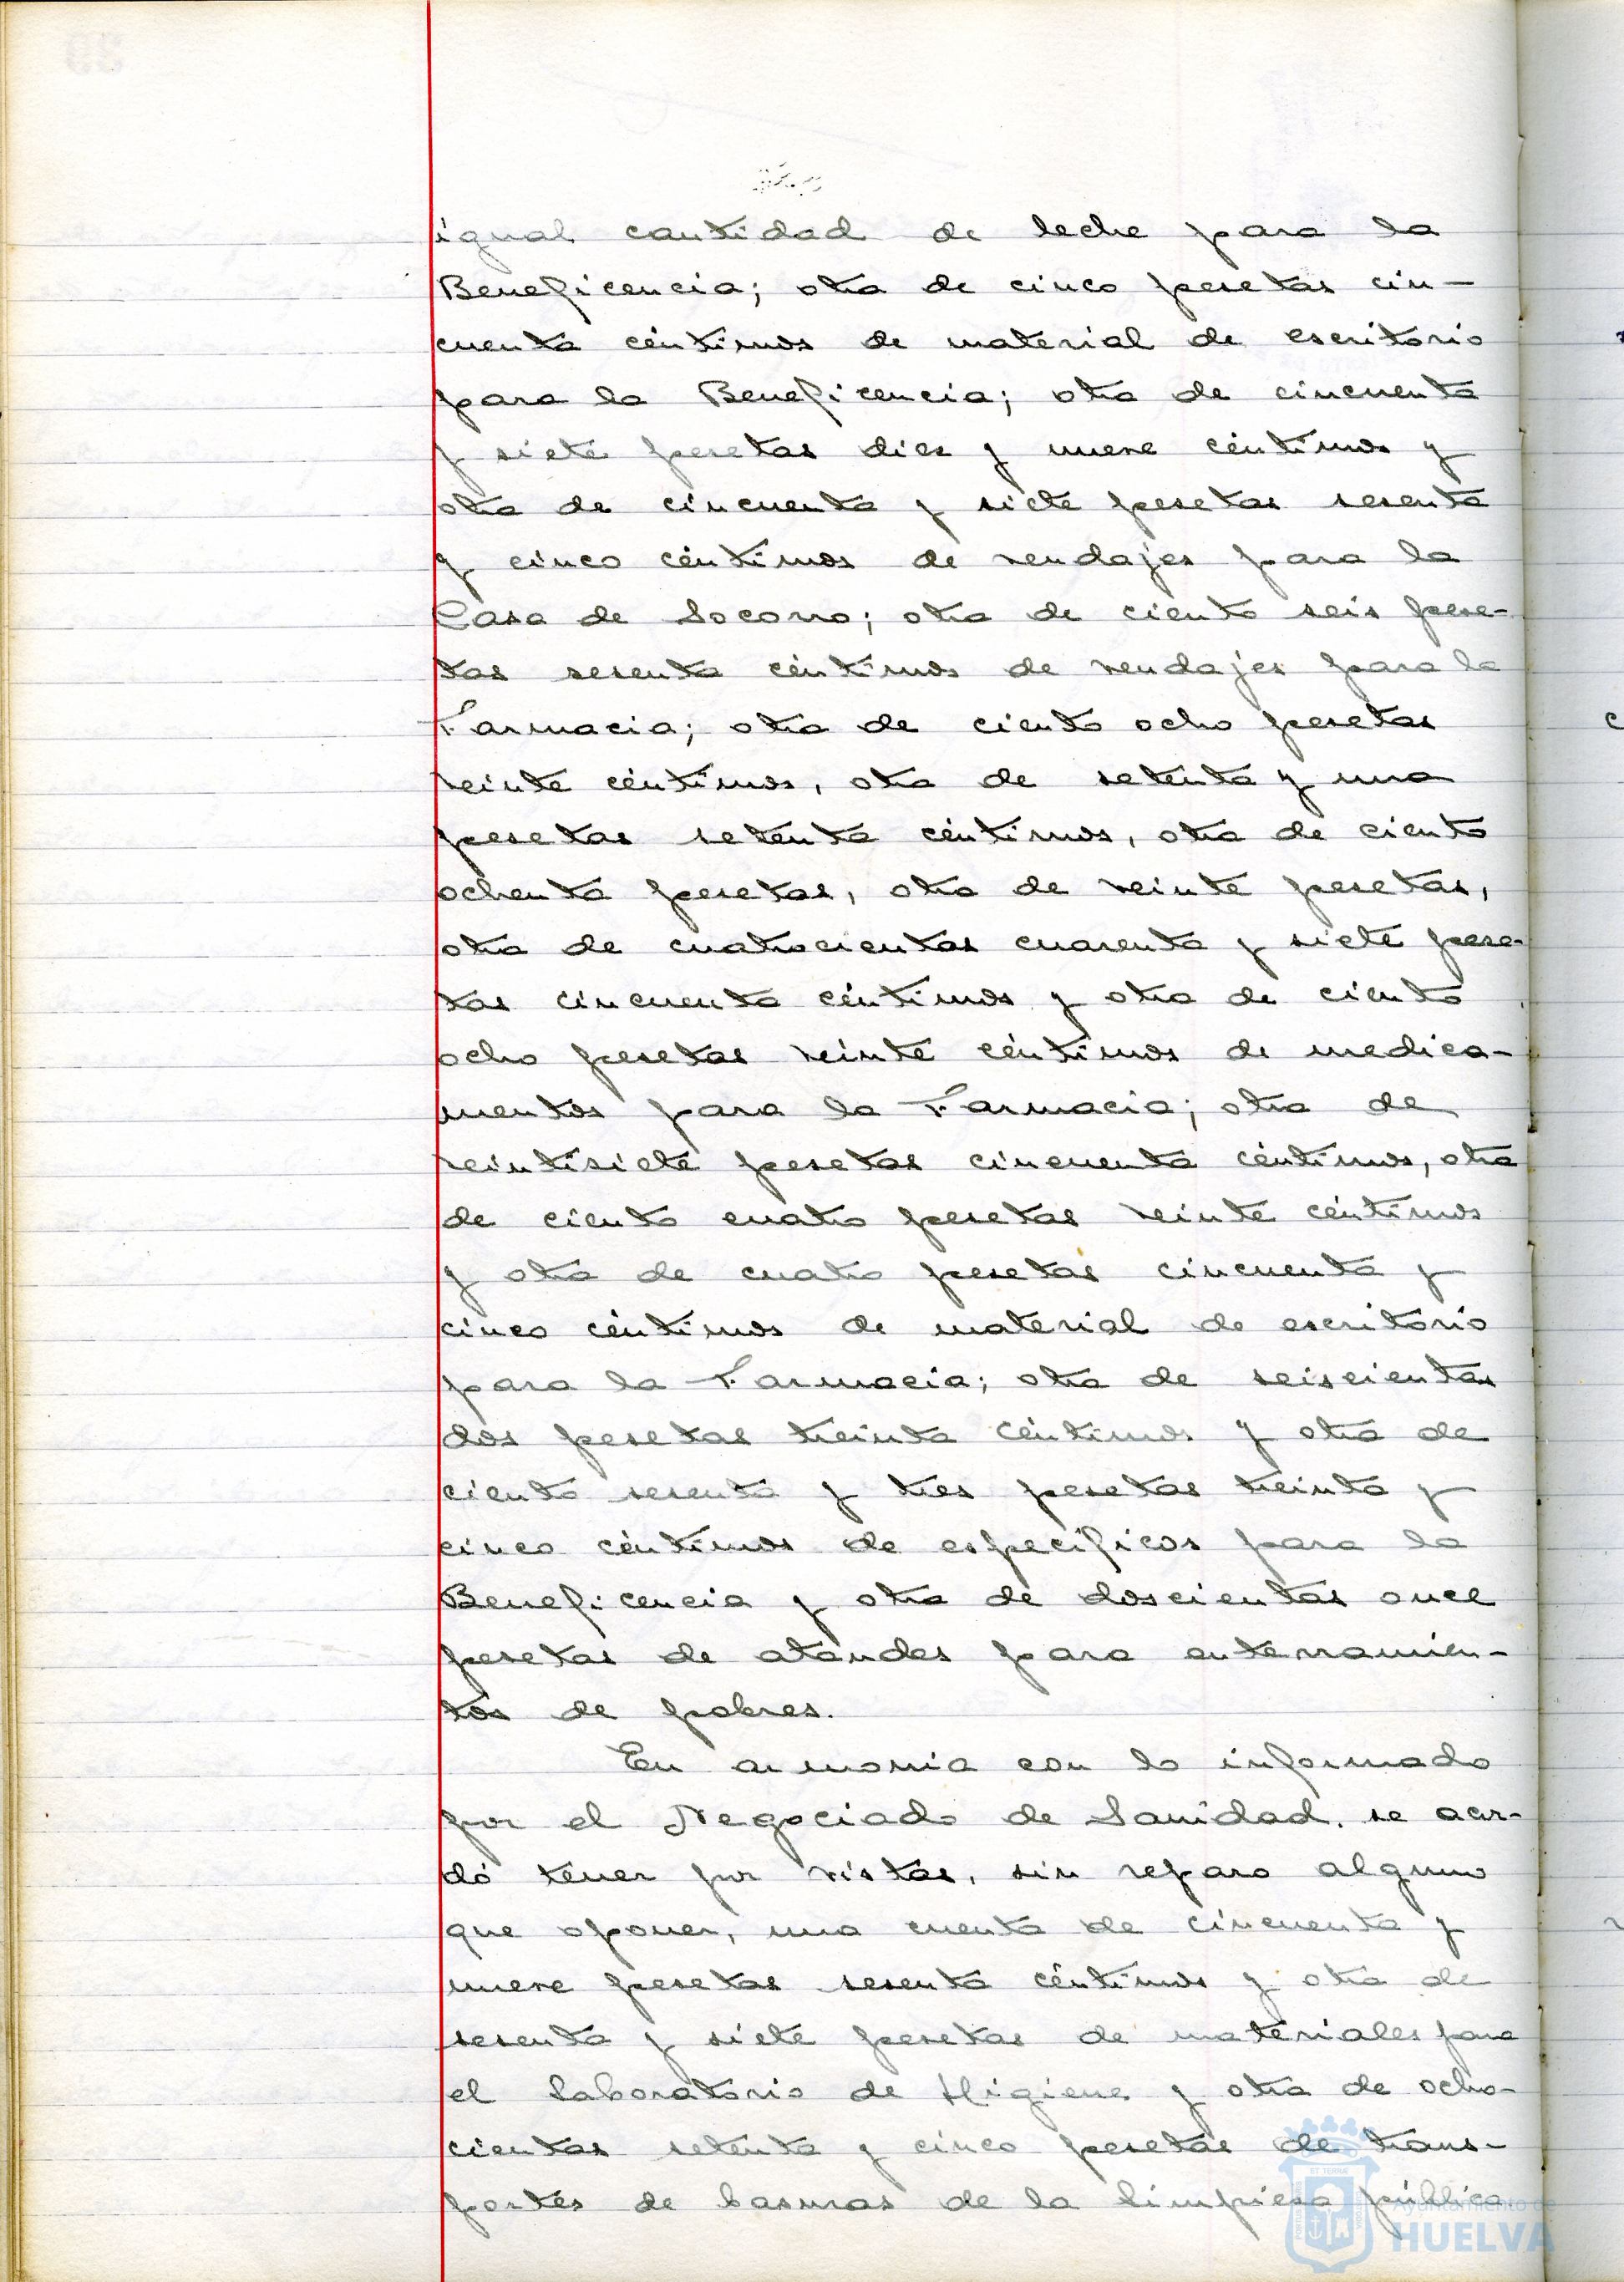 igual cantidad de leche para la
Beneficencia; otra de cinco pesetas cin-
cuenta céntimos de material de escritorio
para la Beneficencia; otra de cincuenta
y siete pesetas diez y nueve céntimos y
otra de cincuenta y siete pesetas sesenta
y cinco céntimos de vendajes para la
Casa de Socorro; otra de ciento seis pese-
tas sesenta céntimos de vendajes para la
Farmacia; otra de ciento ocho pesetas
veinte céntimos, otra de setenta y una
pesetas setenta céntimos, otra de ciento
ochenta pesetas, otra de veinte pesetas,
otra de cuatrocientas cuarenta y siete pese-
tas cincuenta céntimos y otra de ciento
ocho pesetas veinte céntimos de medica-
mentos para la Farmacia; otra de
veintisiete pesetas cincuenta céntimos, otra
de ciento cuatro pesetas veinte céntimos
y otra de cuatro pesetas cincuenta y
cinco céntimos de material de escritorio
para la Farmacia; otra de seiscientas
dos pesetas treinta céntimos y otra de
ciento sesenta y tres pesetas treinta y
cinco céntimos de especificos para la
Beneficencia y otra de doscientas once
pesetas de ataudes para enterramien-
tos de pobres.
En armonia con lo informado
por el Negociado de Sanidad, se acor-
dó tener por vistas, sin reparo alguno
que oponer, una cuenta de cincuenta y
nueve pesetas sesenta céntimos y otra de
sesenta y siete pesetas de materiales para
el laboratorio de Higiene y otra de ocho-
cientas setenta y cinco pesetas de trans-
portes de basuras de la limpieza pública
Ayuntamiento de
HUELVA